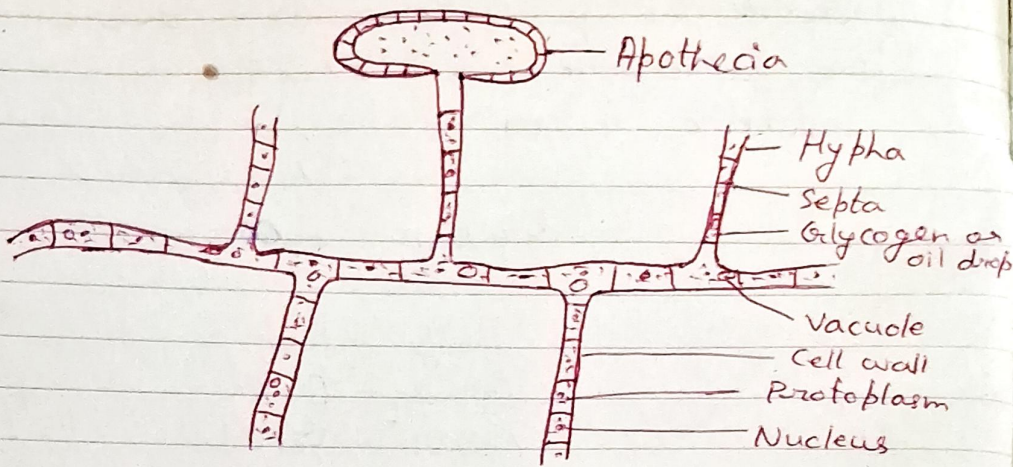 Apothecia
Hypha
Septa
Glycogen or
oil drop
Vacuole
Cell wall
Protoplasm
Nucleus